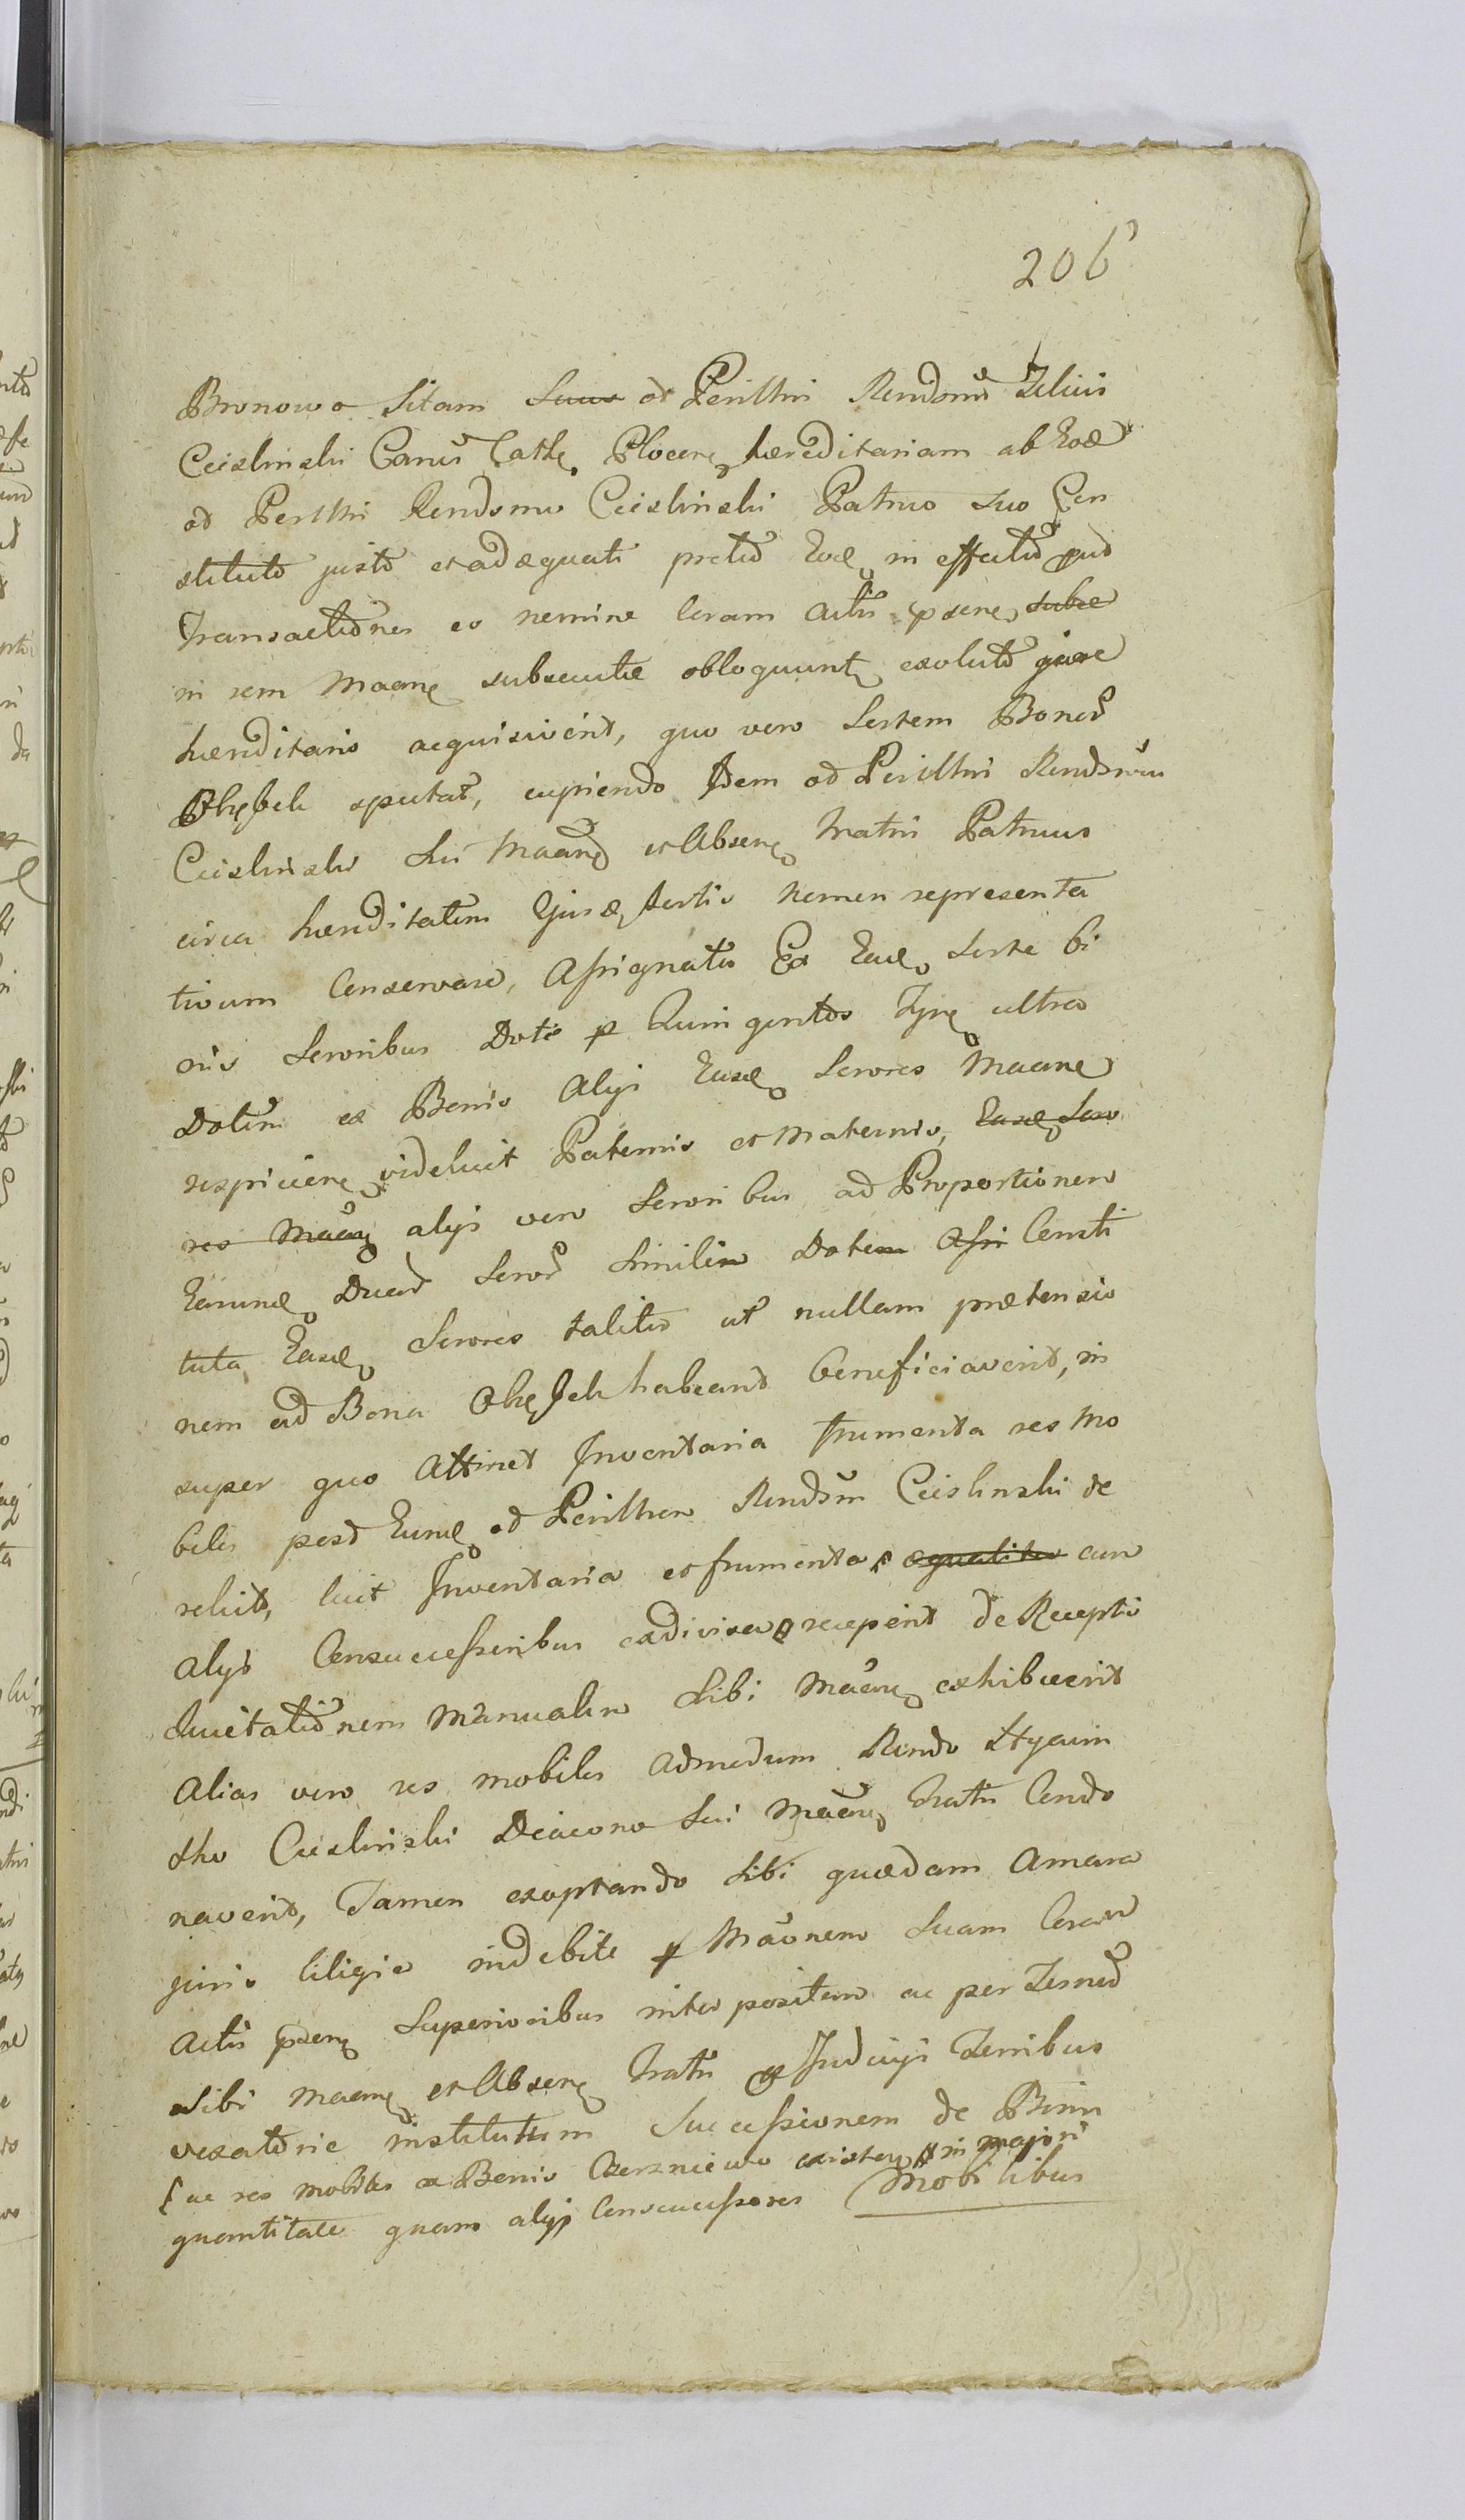 206
Bronowo Sitam ad Perillri Rendomo
Cieslinski Canco Cathe Plocen hæreditariam ab Eod
ad Perillri Rendomo Cieslinski Patruo suo Con
stituto justo et adæquati pretio Eod in effectu
Transactiones eo nemine Coram Actis præsen
in rem Maane subsecutæ obloquunt exoluto jure
hæreditario acquisivent, quo vero Sortem Bonor
spectat, cupiendo Idem ad Perillri Rendomu
Cieslinski Sui Maan et Absen Fratri Patruus
circa hæreditatem Ejusd Sortis Nomen representa
tivum Conservare, Assignatis Ex Ead Sorte bi
nis Sororibus Dotis p Quingentos ultra
Dotem ex Bonis Alys Easd Sorores Maane
respicien videlicet Paternis et Maternis, Easd Soro
res Maan alys vero Sororibus ad Proportionem
Earund Duar Soror Similem Dotem Assi Consti
tuta, Easd Sorores taliter ut nullam prætensio
nem ad Bona habeant beneficiaverit, in
super quo Attinet Inventaria frumenta res Mo
biles post Eund ad Perillrem Rendsm Cieslinski de
relict, licet Inventaria et frumenta æqualiter cum
alys Consuccessoribus exdivisa recepent de Recepti
Quietationem Manualem Sibi Maan exhibuerit
Alias vero res mobiles Admodum Rendo Hyacin
tho Cieslinski Diacono Sui Maan Fratri Condo
navent, Tamen exoptando Sibi quædam Amara
juris litigia indebite p Maonem Suam Coram
Actis præsen Superioribus interpositam ac per
Sibi Maan et Absen Fratri Judicys Terribus
vexatorie institutum Successionem de Bonis
ac res mobiles ex Bonis existen in majori
quantitate quam alys Consuccessores Mobilibus